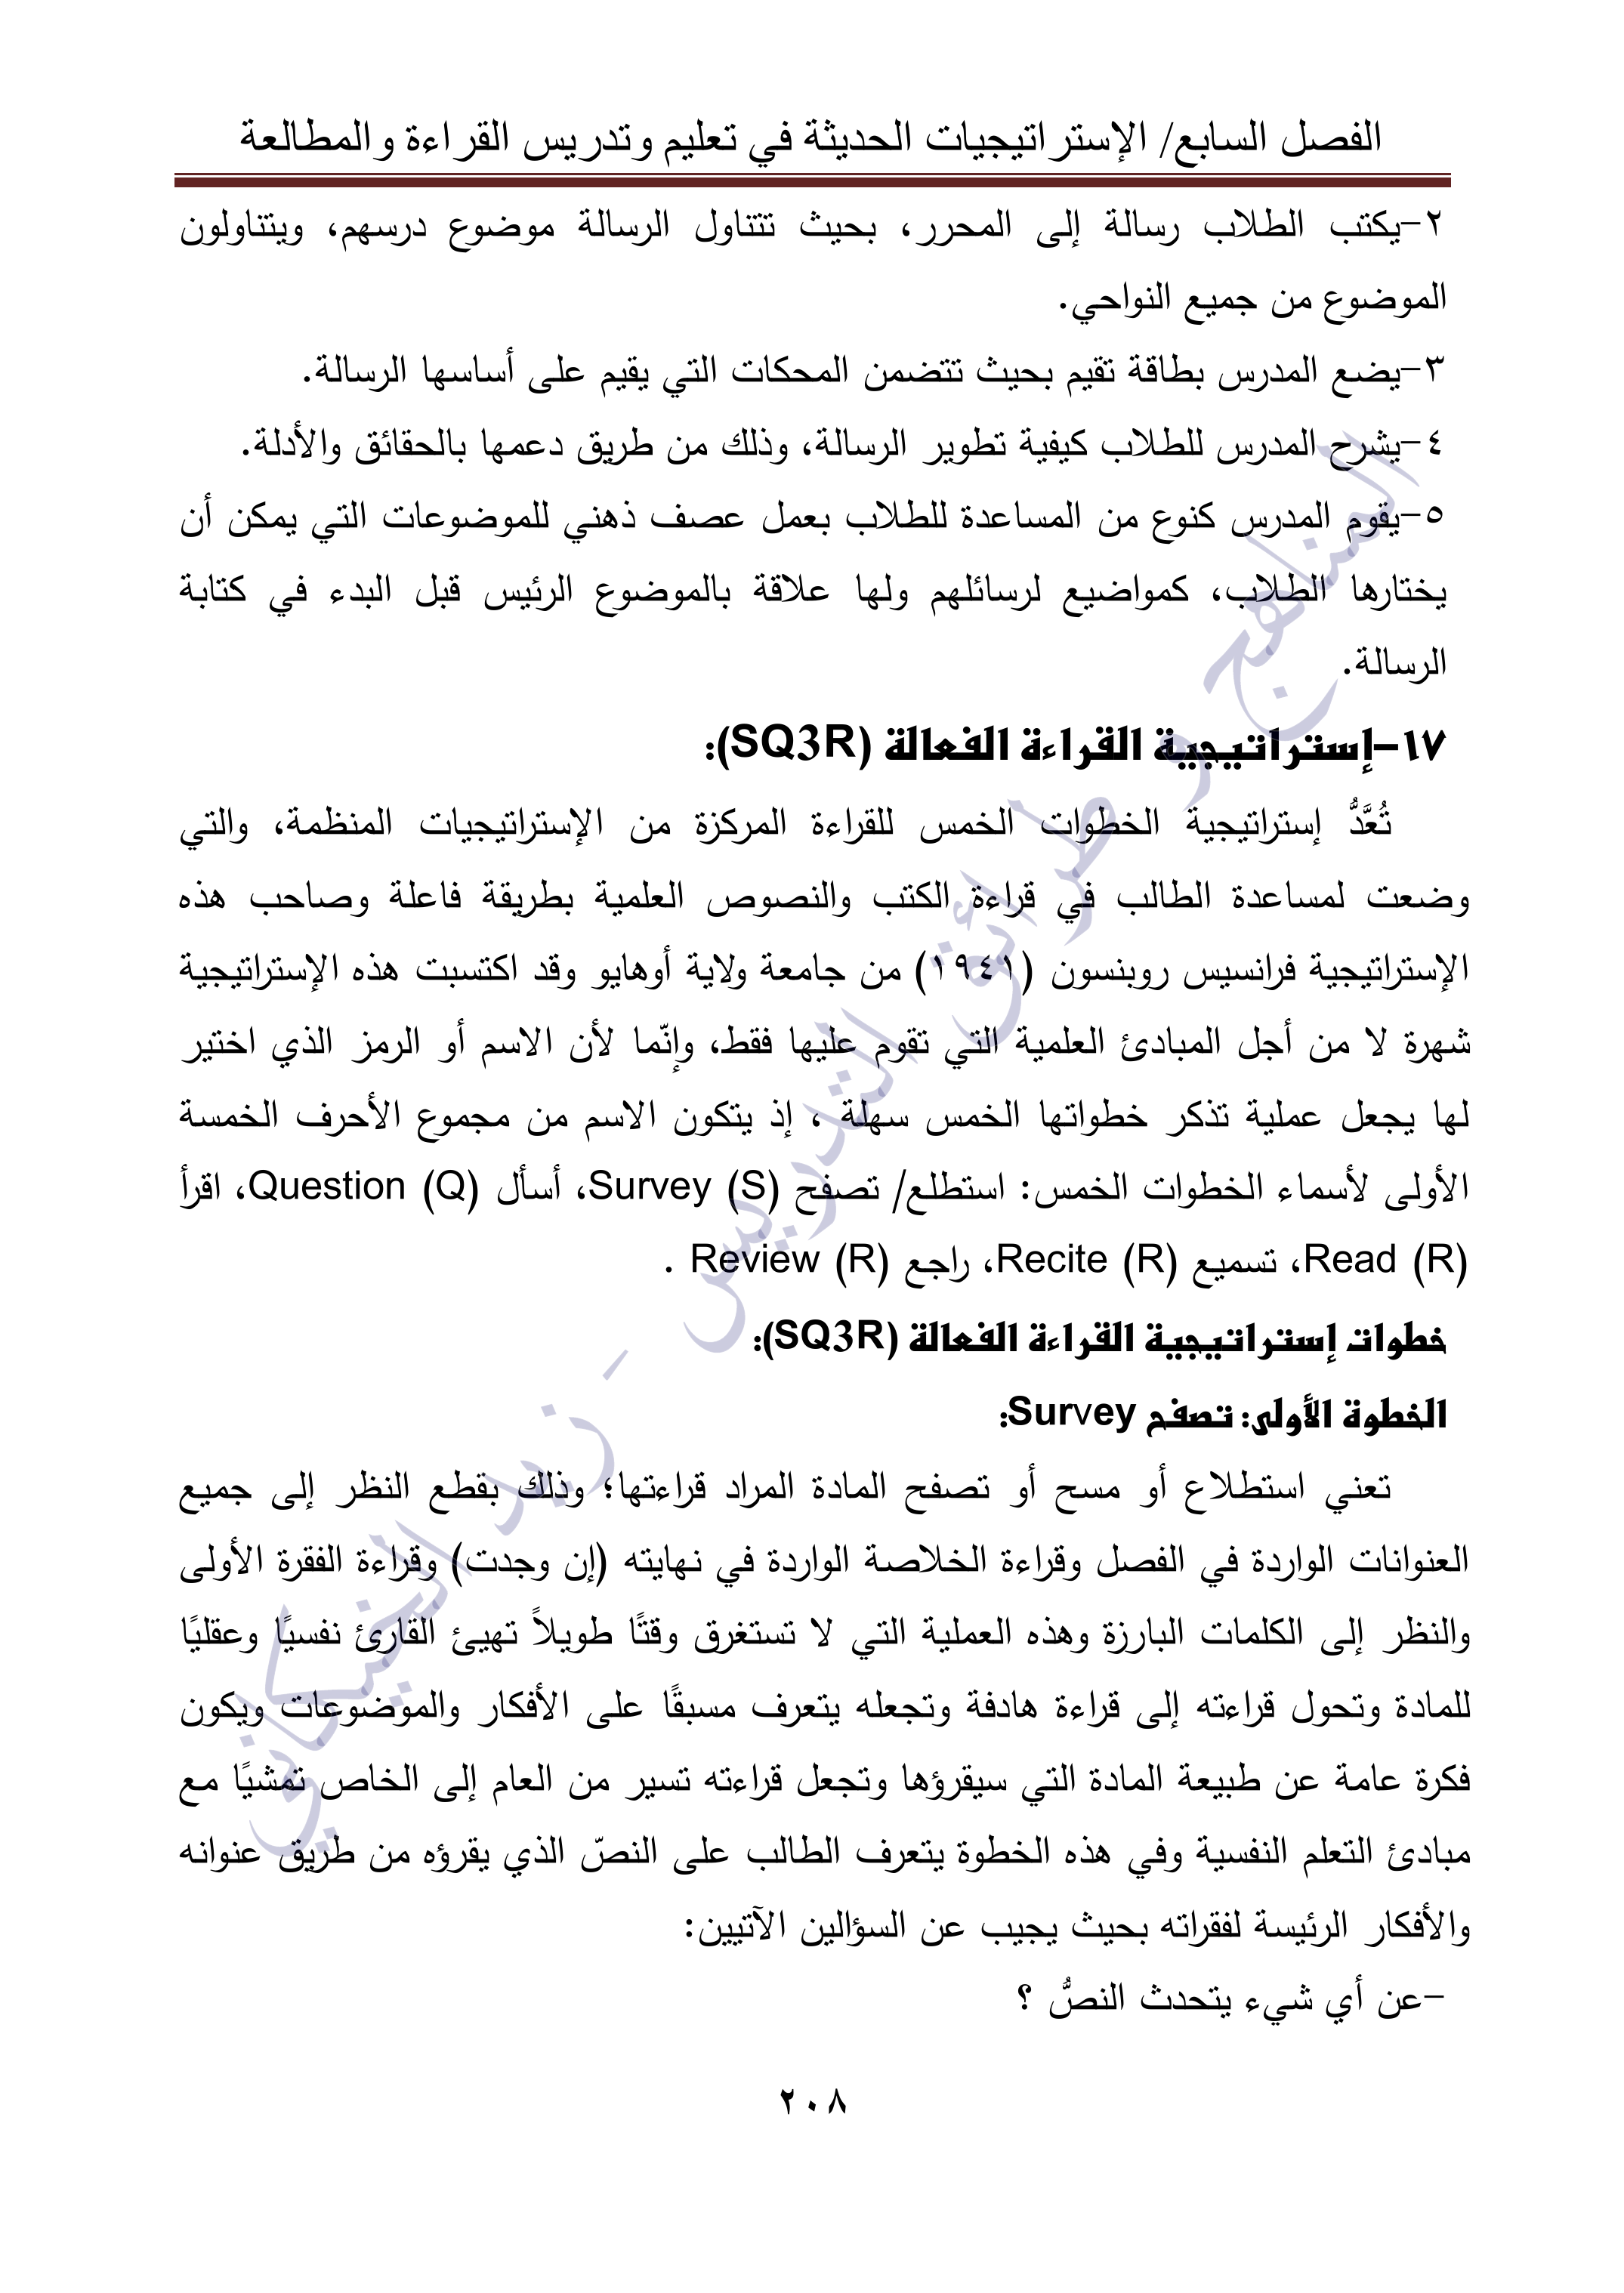 الفصل السابع/ الإستراتيجيات الحديثة في تعليم وتدريس القراءة والمطالعة
٢-يكتب الطلاب رسالة إلى المحرر، بحيث تتناول الرسالة موضوع درسهم، ويتناولون
الموضوع من جميع النواحي.
٣-يضع المدرس بطاقة تقيم بحيث تتضمن المحكات التي يقيم على أساسها الرسالة.
٤-يشرح المدرس للطلاب كيفية تطوير الرسالة، وذلك من طريق دعمها بالحقائق والأدلة.
٥-يقوم المدرس كنوع من المساعدة للطلاب بعمل عصف ذهني للموضوعات التي يمكن أن
يختارها الطلاب، كمواضيع لرسائلهم ولها علاقة بالموضوع الرئيس قبل البدء في كتابة
الرسالة.
١٧-إستراتيجية القراءة الفعالة (SQ3R):
تُعَّدُّ إستراتيجية الخطوات الخمس للقراءة المركزة من الإستراتيجيات المنظمة، والتي
وضعت لمساعدة الطالب في قراءة الكتب والنصوص العلمية بطريقة فاعلة وصاحب هذه
الإستراتيجية فرانسيس روبنسون (١٩٤١) من جامعة ولاية أوهايو وقد اكتسبت هذه الإستراتيجية
شهرة لا من أجل المبادئ العلمية التي تقوم عليها فقط، وإنّما لأن الاسم أو الرمز الذي اختير
لها يجعل عملية تذكر خطواتها الخمس سهلة ، إذ يتكون الاسم من مجموع الأحرف الخمسة
الأولى لأسماء الخطوات الخمس: استطلع/ تصفح Survey (S)، أسأل Question (Q)، اقرأ
Read (R)، تسميع Recite (R)، راجع Review (R) .
خطوات إستراتيجية القراءة الفعالة (SQ3R):
الخطوة الأولى: تصفح Survey:
تعني استطلاع أو مسح أو تصفح المادة المراد قراءتها؛ وذلك بقطع النظر إلى جميع
العنوانات الواردة في الفصل وقراءة الخلاصة الواردة في نهايته (إن وجدت) وقراءة الفقرة الأولى
والنظر إلى الكلمات البارزة وهذه العملية التي لا تستغرق وقتًا طويلاً تهيئ القارئ نفسيًا وعقليًا
للمادة وتحول قراءته إلى قراءة هادفة وتجعله يتعرف مسبقًا على الأفكار والموضوعات ويكون
فكرة عامة عن طبيعة المادة التي سيقرؤها وتجعل قراءته تسير من العام إلى الخاص تمشيًا مع
مبادئ التعلم النفسية وفي هذه الخطوة يتعرف الطالب على النصّ الذي يقرؤه من طريق عنوانه
والأفكار الرئيسة لفقراته بحيث يجيب عن السؤالين الآتيين:
-عن أي شيء يتحدث النصُّ ؟
٢٠٨
المناهج و طرائق التدريس - زيد الخيكاني